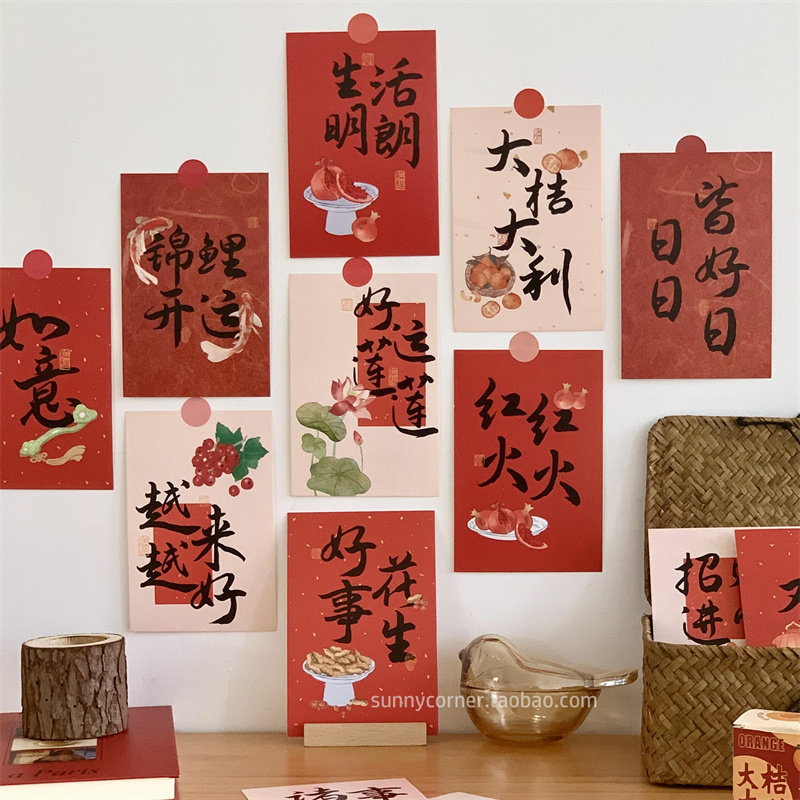 生活
明朗
大
桔
大
利
皆好日
日日
锦鲤
开运
如
意
好运
莲莲
红红
火火
越来
越好
好花
事生
招
进
诸事
sunnycorner.taobao.com
ORANGE
大桔
a Paris